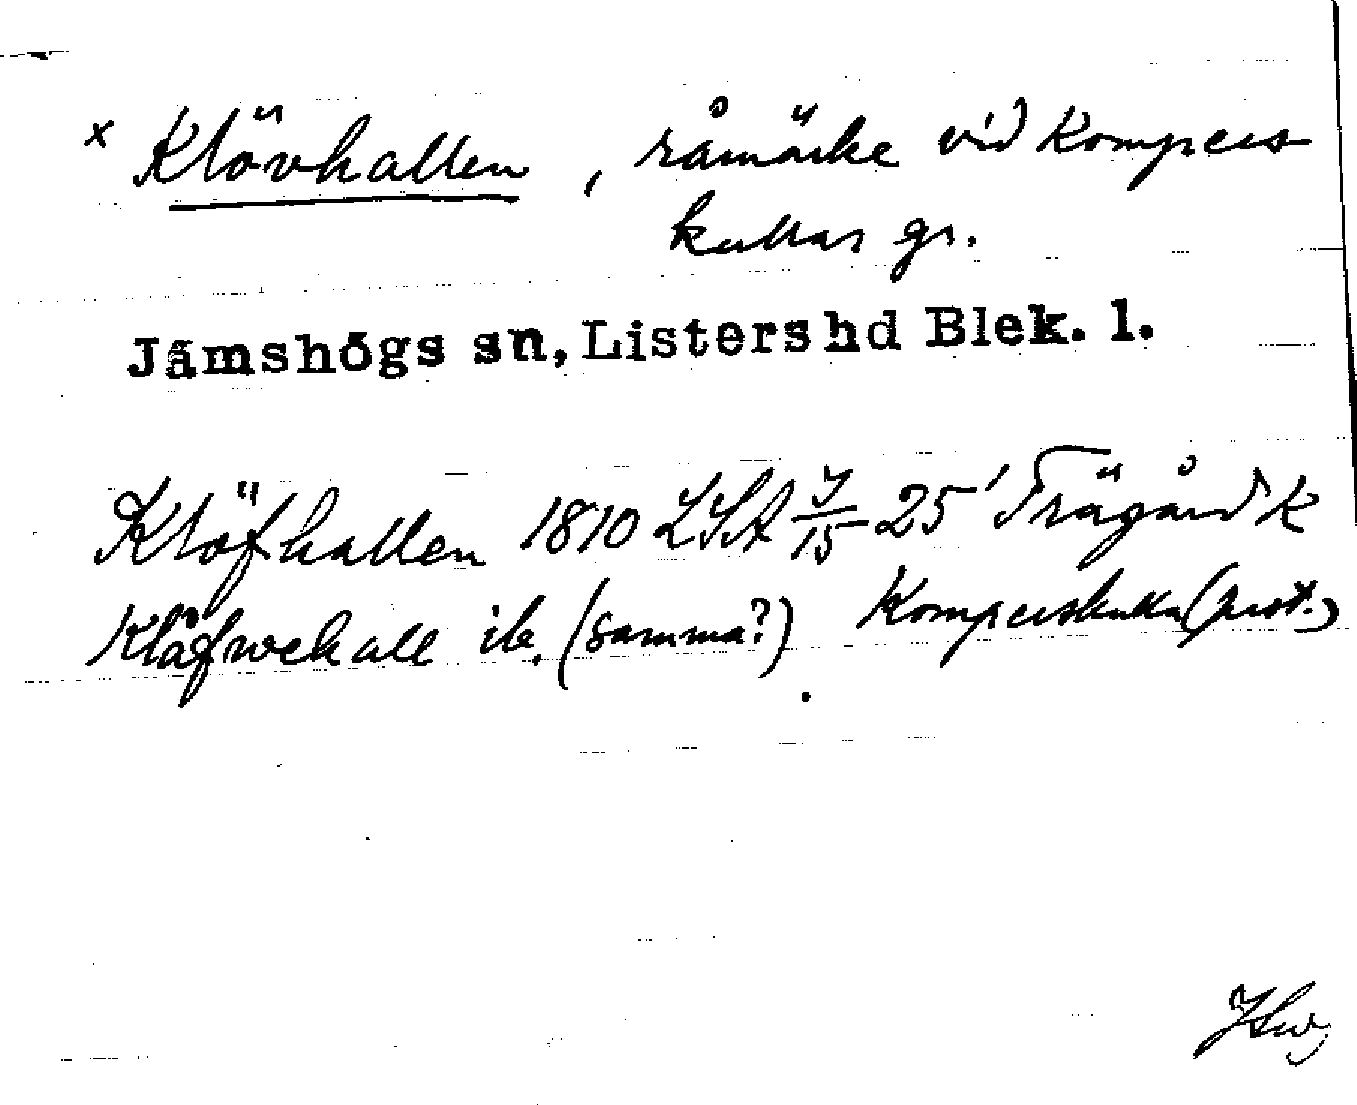 x Klövhallen, råmärke vid Kompers
kullas gr.
Jämshögs sn, Listers hd Blek. l.
Klöfhallen 1810 LSA J/15-25' Trägård k
Klåfwehall ib. (samma?) Komperskulla (prot.)